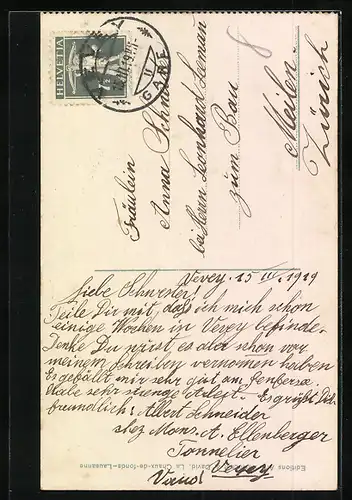 HELVETIA
GARE
Fräulein
Anna Schneider
bei Herrn Leonhard Leeman
zum Bau
Meilen
Zürich
8
Vevey. 15 III. 1919
Liebe Schwester!
Teile Dir mit, dass ich mich schon
einige Wochen in Vevey befinde.
Denke Du wirst es aber schon von
meinem Schreiben vernommen haben
Es gefällt mir sehr gut am Genfersee.
Habe sehr strenge Arbeit. Es grüßt Dich
freundlich! Albert Schneider
chez Mons. A. Ellenberger
Tonnelier
Vevey
Vaud
Editions David, La Chaux-de-fonds-Lausanne